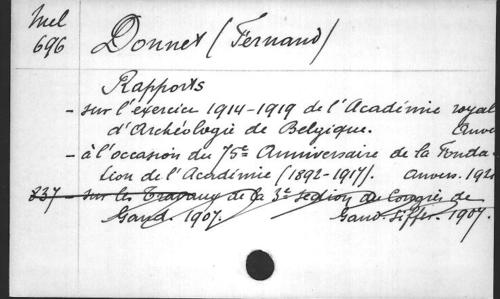 Mel
696
Donnet (Fernand)
Rapports
- sur l'exercice 1914-1919 de l'Académie royal
d'Archéologie de Belgique. Anve
- à l'occasion du 75e Anniversaire de la Fonda
tion de l'Académie (1892-1917). Anvers. 192
837 - sur les Travaux de la 3e section du Congrès de
Gand. 1907. Gand. Siffer. 1907.